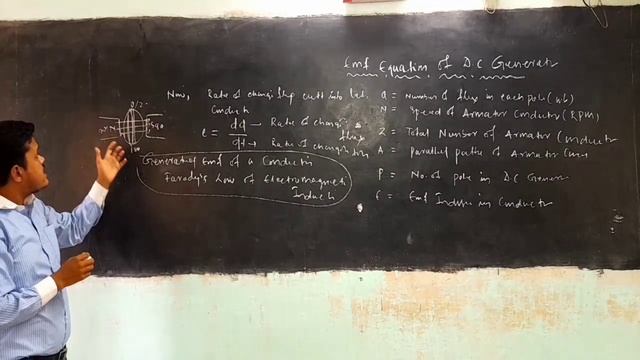 Emf Equation of DC Generat
Now, Rate of change flux cutt into
Conduct
e = dΦ → Rate of change flux
dt → Rate of change time
Generating Emf of a Conduct
Farady's Law of Electromagneti
Induct
Φ = Number of flux in each pole (wb)
N = Speed of Armator Conductor (RPM)
Z = Total Number of Armator Conductor
A = Parallel paths of Armator
P = No. of pole in DC Generat
E = Emf Induse in Conductor